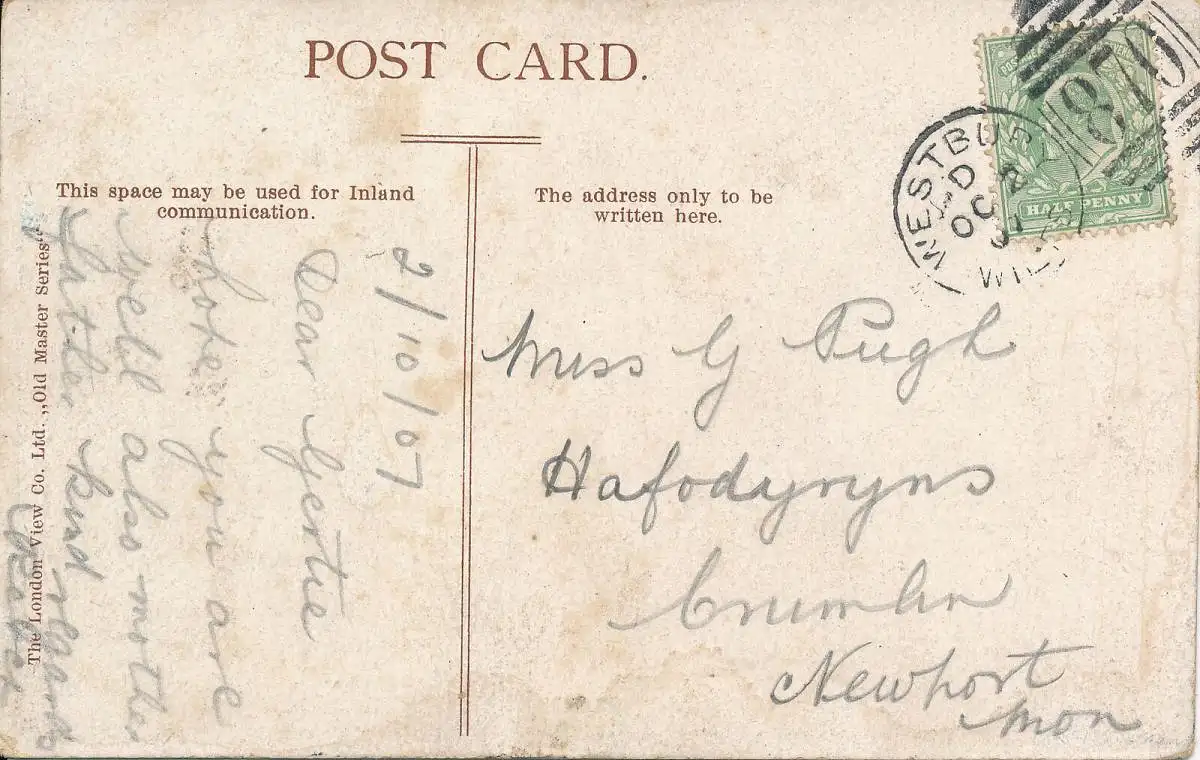 POST CARD.
This space may be used for Inland
communication.
The address only to be
written here.
The London View Co. Ltd. „Old Master Series"
2/10/07
Dear Gertie
hope you are
well also mother
father kind regards
Miss G Pugh
Hafodyryns
Crumlin
Newport
Mon
WESTBURY
OC 2
WILTS
870
HALF PENNY